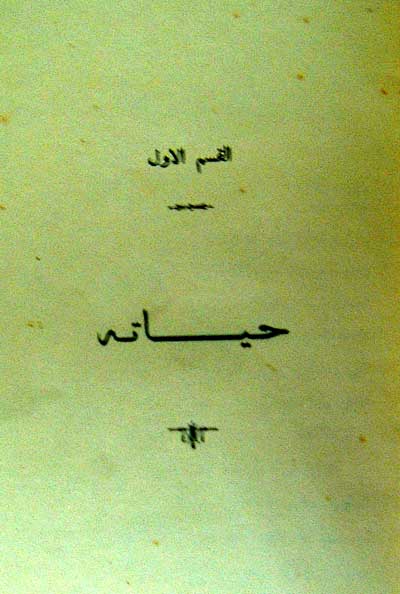 القسم الاول
حيـــاته